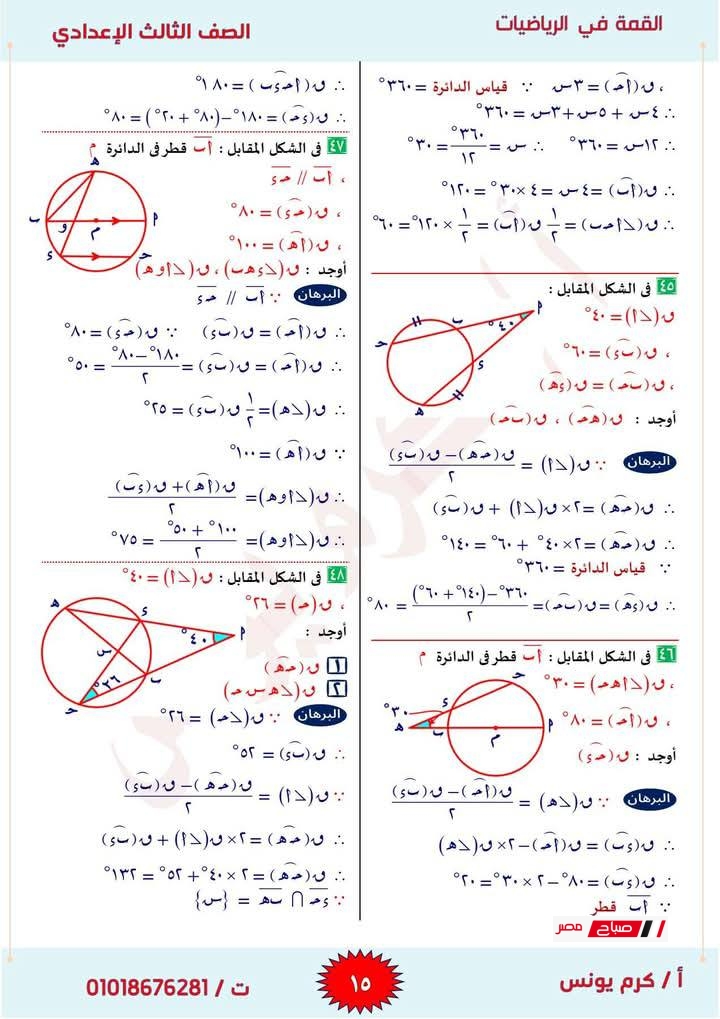 القمة في الرياضيات
الصف الثالث الإعدادي
، ق(أحـ) = ٣س ∵ قياس الدائرة = ٣٦٠°
∴ ٤س + ٥س + ٣س = ٣٦٠°
∴ ١٢س = ٣٦٠° ∴ س = ٣٦٠°/١٢ = ٣٠°
∴ ق(أب) = ٤س = ٤ × ٣٠° = ١٢٠°
∴ ق(∠أحب) = ١/٢ ق(أب) = ١/٢ × ١٢٠° = ٦٠°
٤٥ فى الشكل المقابل :
ق(∠أ) = ٤٠°
، ق(بء) = ٦٠°
، ق(بحـ) = ق(ءهـ)
أوجد : ق(هحـ) ، ق(بحـ)
أ
٤٠°
ب
حـ
ء
هـ
البرهان ∵ ق(∠أ) = (ق(حهـ) − ق(بء))/٢
∴ ق(حهـ) = ٢ × ق(∠أ) + ق(بء)
∴ ق(حهـ) = ٢ × ٤٠° + ٦٠° = ١٤٠°
∵ قياس الدائرة = ٣٦٠°
∴ ق(ءهـ) = ق(بحـ) = (٣٦٠° − (١٤٠° + ٦٠°))/٢ = ٨٠°
٤٦ فى الشكل المقابل : أب قطر فى الدائرة م
، ق(∠أهحـ) = ٣٠°
، ق(أحـ) = ٨٠°
أوجد : ق(حء)
حـ
ء
٣٠°
هـ
ب
م
أ
البرهان ∵ ق(∠هـ) = (ق(أحـ) − ق(بء))/٢
∴ ق(ءب) = ق(أحـ) − ٢ × ق(∠هـ)
∴ ق(ءب) = ٨٠° − ٢ × ٣٠° = ٢٠°
∵ أب قطر
صباح مصر
∴ ق(أحءب) = ١٨٠°
∴ ق(ءحـ) = ١٨٠° − (٨٠° + ٢٠°) = ٨٠°
٤٧ فى الشكل المقابل : أب قطر فى الدائرة م
، أب // حء
، ق(حء) = ٨٠°
، ق(أهـ) = ١٠٠°
أوجد : ق(∠ءهب) ، ق(∠أوهـ)
هـ
ب
و
م
أ
ء
حـ
البرهان ∵ أب // حء
∴ ق(أحـ) = ق(بء) ∵ ق(حء) = ٨٠°
∴ ق(أحـ) = ق(بء) = (١٨٠° − ٨٠°)/٢ = ٥٠°
∴ ق(∠هـ) = ١/٢ ق(بء) = ٢٥°
∵ ق(أهـ) = ١٠٠°
∴ ق(∠أوهـ) = (ق(أهـ) + ق(ءب))/٢
∴ ق(∠أوهـ) = (١٠٠° + ٥٠°)/٢ = ٧٥°
٤٨ فى الشكل المقابل : ق(∠أ) = ٤٠°
، ق(حـ) = ٢٦°
أوجد :
١ ق(حهـ)
٢ ق(∠هسحـ)
هـ
ء
٤٠°
أ
س
ب
٢٦°
حـ
البرهان ∵ ق(∠حـ) = ٢٦°
∴ ق(بء) = ٥٢°
∵ ق(∠أ) = (ق(حهـ) − ق(بء))/٢
∴ ق(حهـ) = ٢ × ق(∠أ) + ق(بء)
∴ ق(حهـ) = ٢ × ٤٠° + ٥٢° = ١٣٢°
∵ ءحـ ∩ بهـ = {س}
أ / كرم يونس
١٥
ت / 01018676281